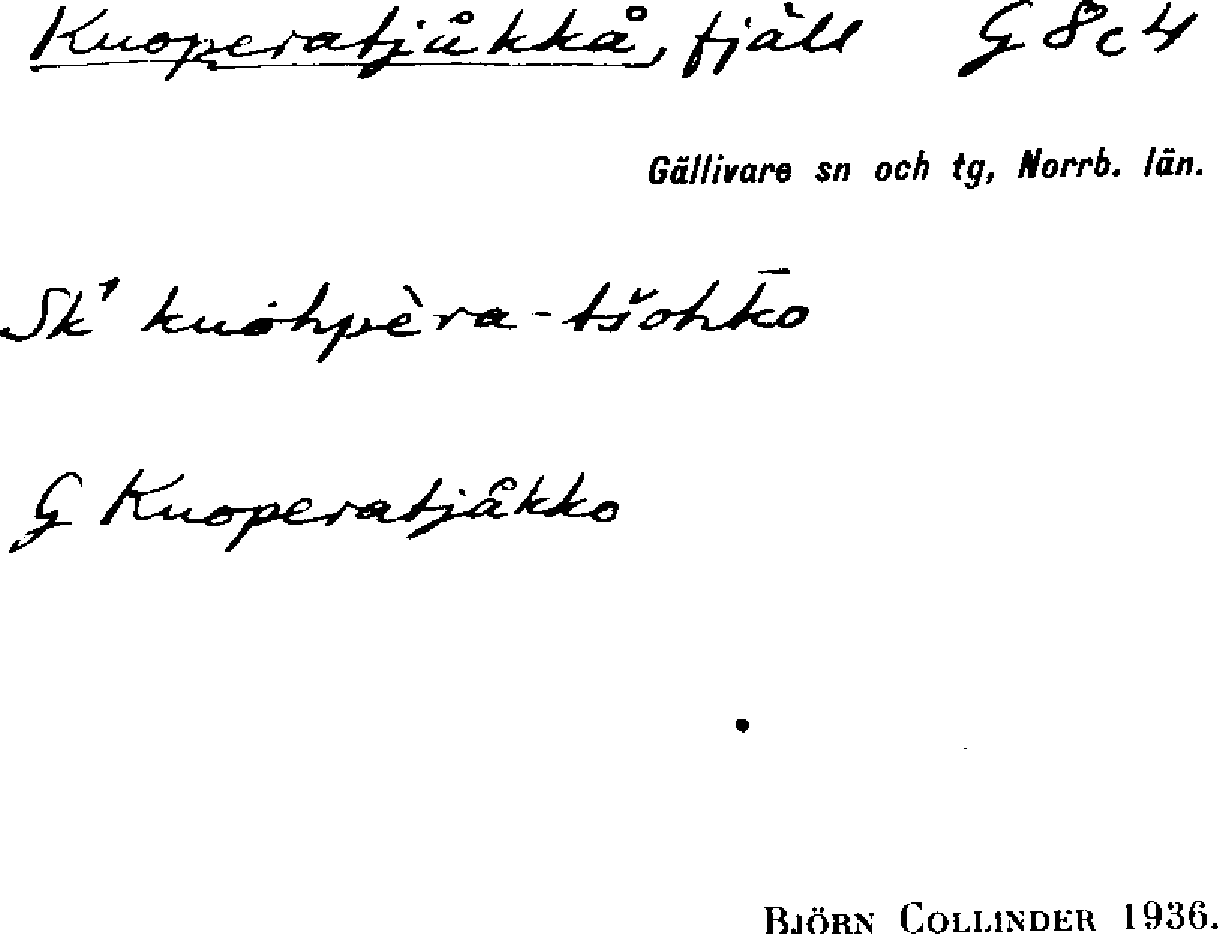 Kuoperatjåkkå, fjäll G 8c4
Gällivare sn och tg, Norrb. län.
Sk¹ kuohpèra-tšohk̄o
G Kuoperatjåkko
BJÖRN COLLINDER 1936.